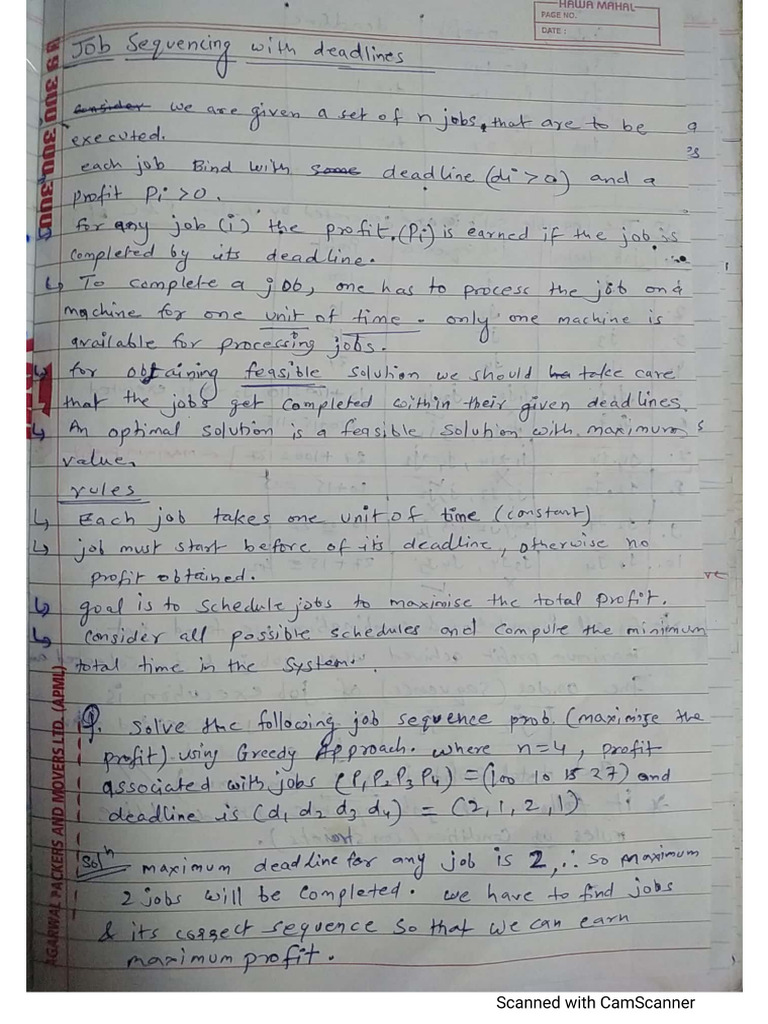 HAWA MAHAL
PAGE NO.
DATE :
Job Sequencing with deadlines
consider we are given a set of n jobs, that are to be
executed.
each job Bind with some deadline (di > 0) and a
profit Pi > 0.
for any job (i) the profit (Pi) is earned if the job is
completed by its deadline.
↳ To complete a job, one has to process the job on a
machine for one unit of time. only one machine is
available for processing jobs.
↳ for obtaining feasible solution we should take care
that the jobs get completed within their given deadlines.
↳ An optimal solution is a feasible solution with maximum
value.
rules
↳ Each job takes one unit of time (constant)
↳ job must start before of its deadline, otherwise no
profit obtained.
↳ goal is to schedule jobs to maximise the total profit.
↳ Consider all possible schedules and compute the minimum
total time in the system.
Q. Solve the following job sequence prob. (maximize the
profit) using Greedy Approach. where n=4, profit
associated with jobs (P1 P2 P3 P4) = (100 10 15 27) and
deadline is (d1 d2 d3 d4) = (2, 1, 2, 1)
Solⁿ maximum deadline for any job is 2, ∴ so maximum
2 jobs will be completed. we have to find jobs
& its correct sequence so that we can earn
maximum profit.
AGARWAL PACKERS AND MOVERS LTD. (APML)
Scanned with CamScanner